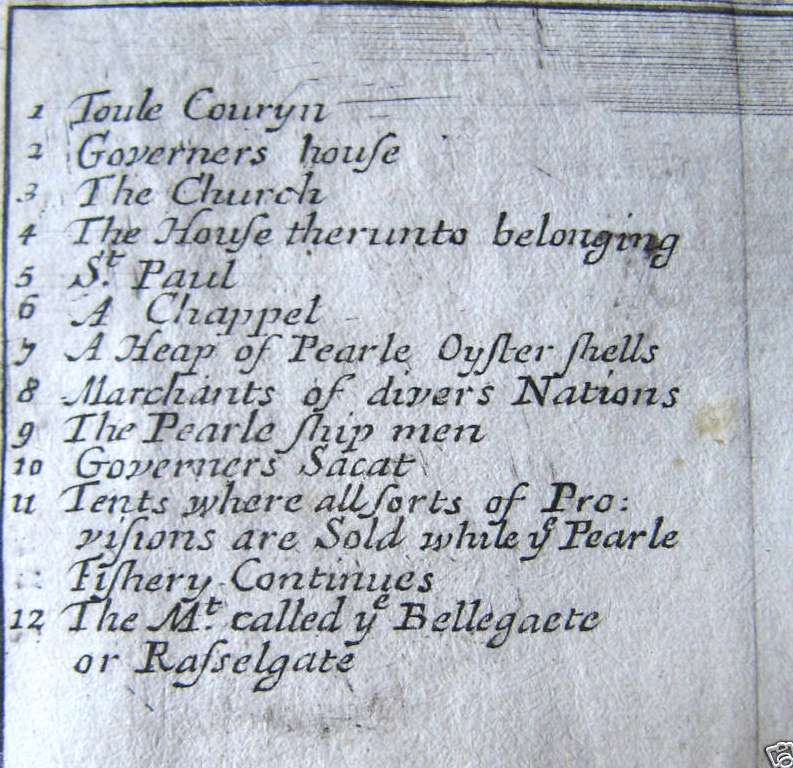 1 Toule Couryn
2 Governers houſe
3 The Church
4 The Houſe therunto belonging
5 St. Paul
6 A Chappel
7 A Heap of Pearle Oyſter ſhells
8 Marchants of divers Nations
9 The Pearle ſhip men
10 Governers Sacat
11 Tents where all ſorts of Pro:
viſions are Sold while ye Pearle
Fiſhery Continues
12 The Mt. called ye Bellegaete
or Raſselgate